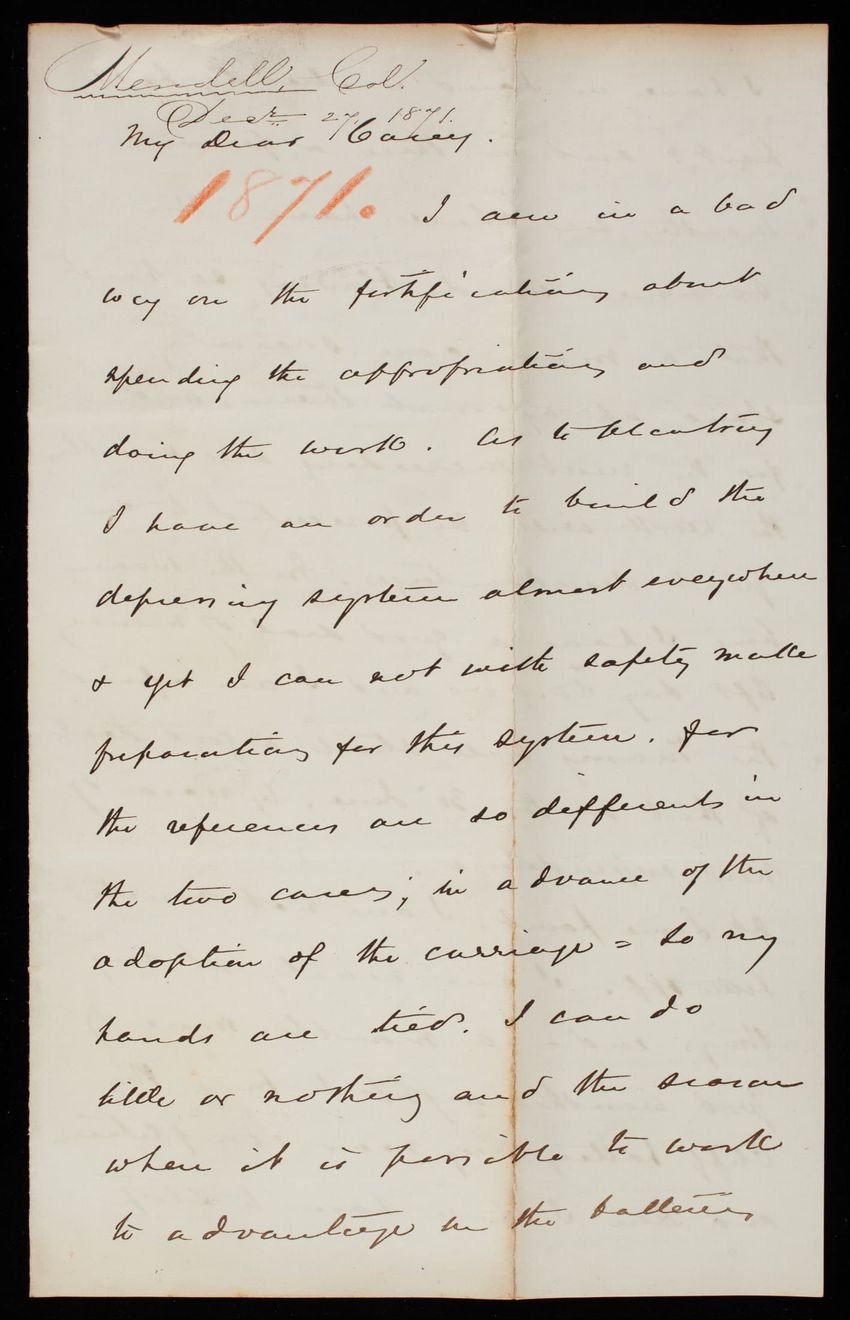 Mendell, Col.
Decr 27, 1871.
My Dear Casey.
1871.
I am in a bad
way on the fortifications about
spending the appropriations and
doing the work. As to Alcatraz
I have an order to build the
depressing system almost everywhere
& yet I can not with safety make
preparations for this system. for
the references are so different in
the two cases; in advance of the
adoption of the carriage = So my
hands are tied. I can do
little or nothing and the season
when it is possible to work
to advantage on the batteries